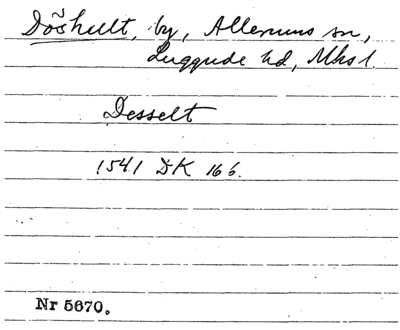 Döshult, by, Allerums sn,
Luggude hd, Mhs l.
Desselt
1541 DK 166.
Nr 5670.